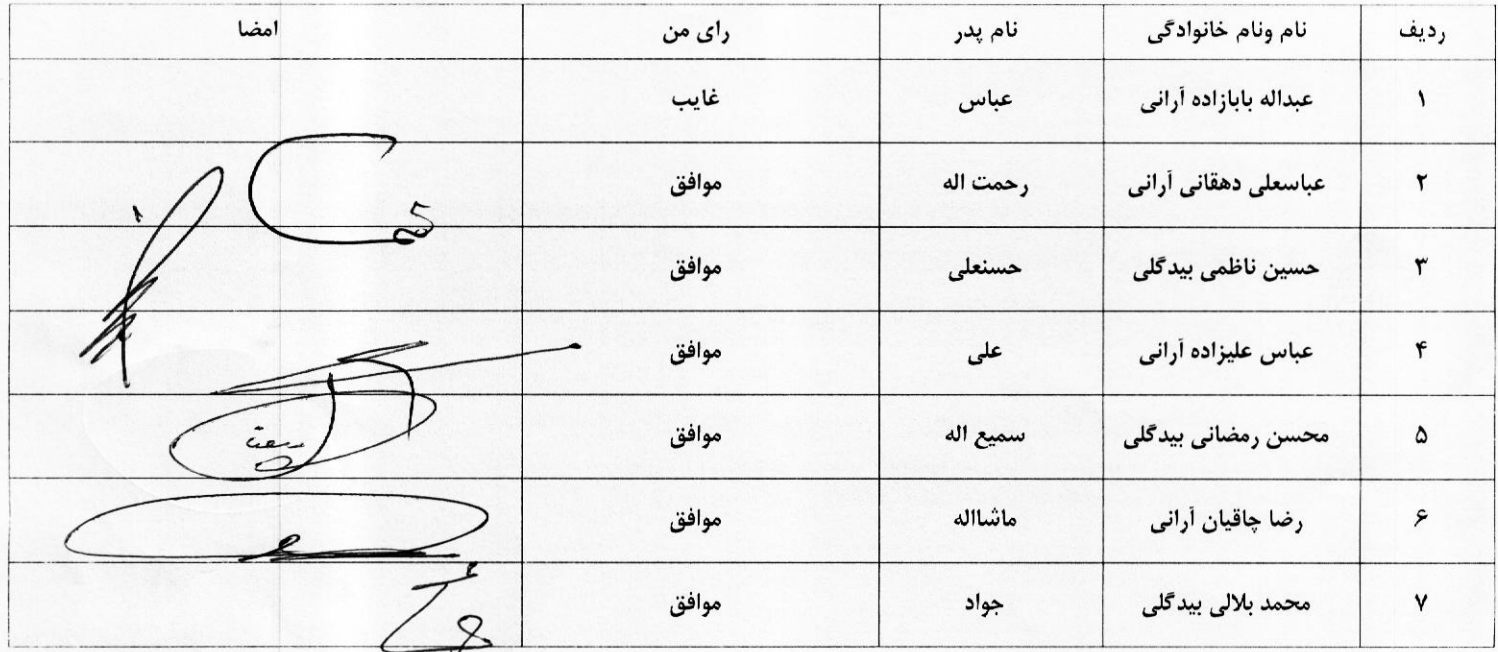 ردیف نام ونام خانوادگی نام پدر رای من امضا
۱ عبداله بابازاده آرانی عباس غایب
۲ عباسعلی دهقانی آرانی رحمت اله موافق
۳ حسین ناظمی بیدگلی حسنعلی موافق
۴ عباس علیزاده آرانی علی موافق
۵ محسن رمضانی بیدگلی سمیع اله موافق
۶ رضا چاقیان آرانی ماشااله موافق
۷ محمد بلالی بیدگلی جواد موافق